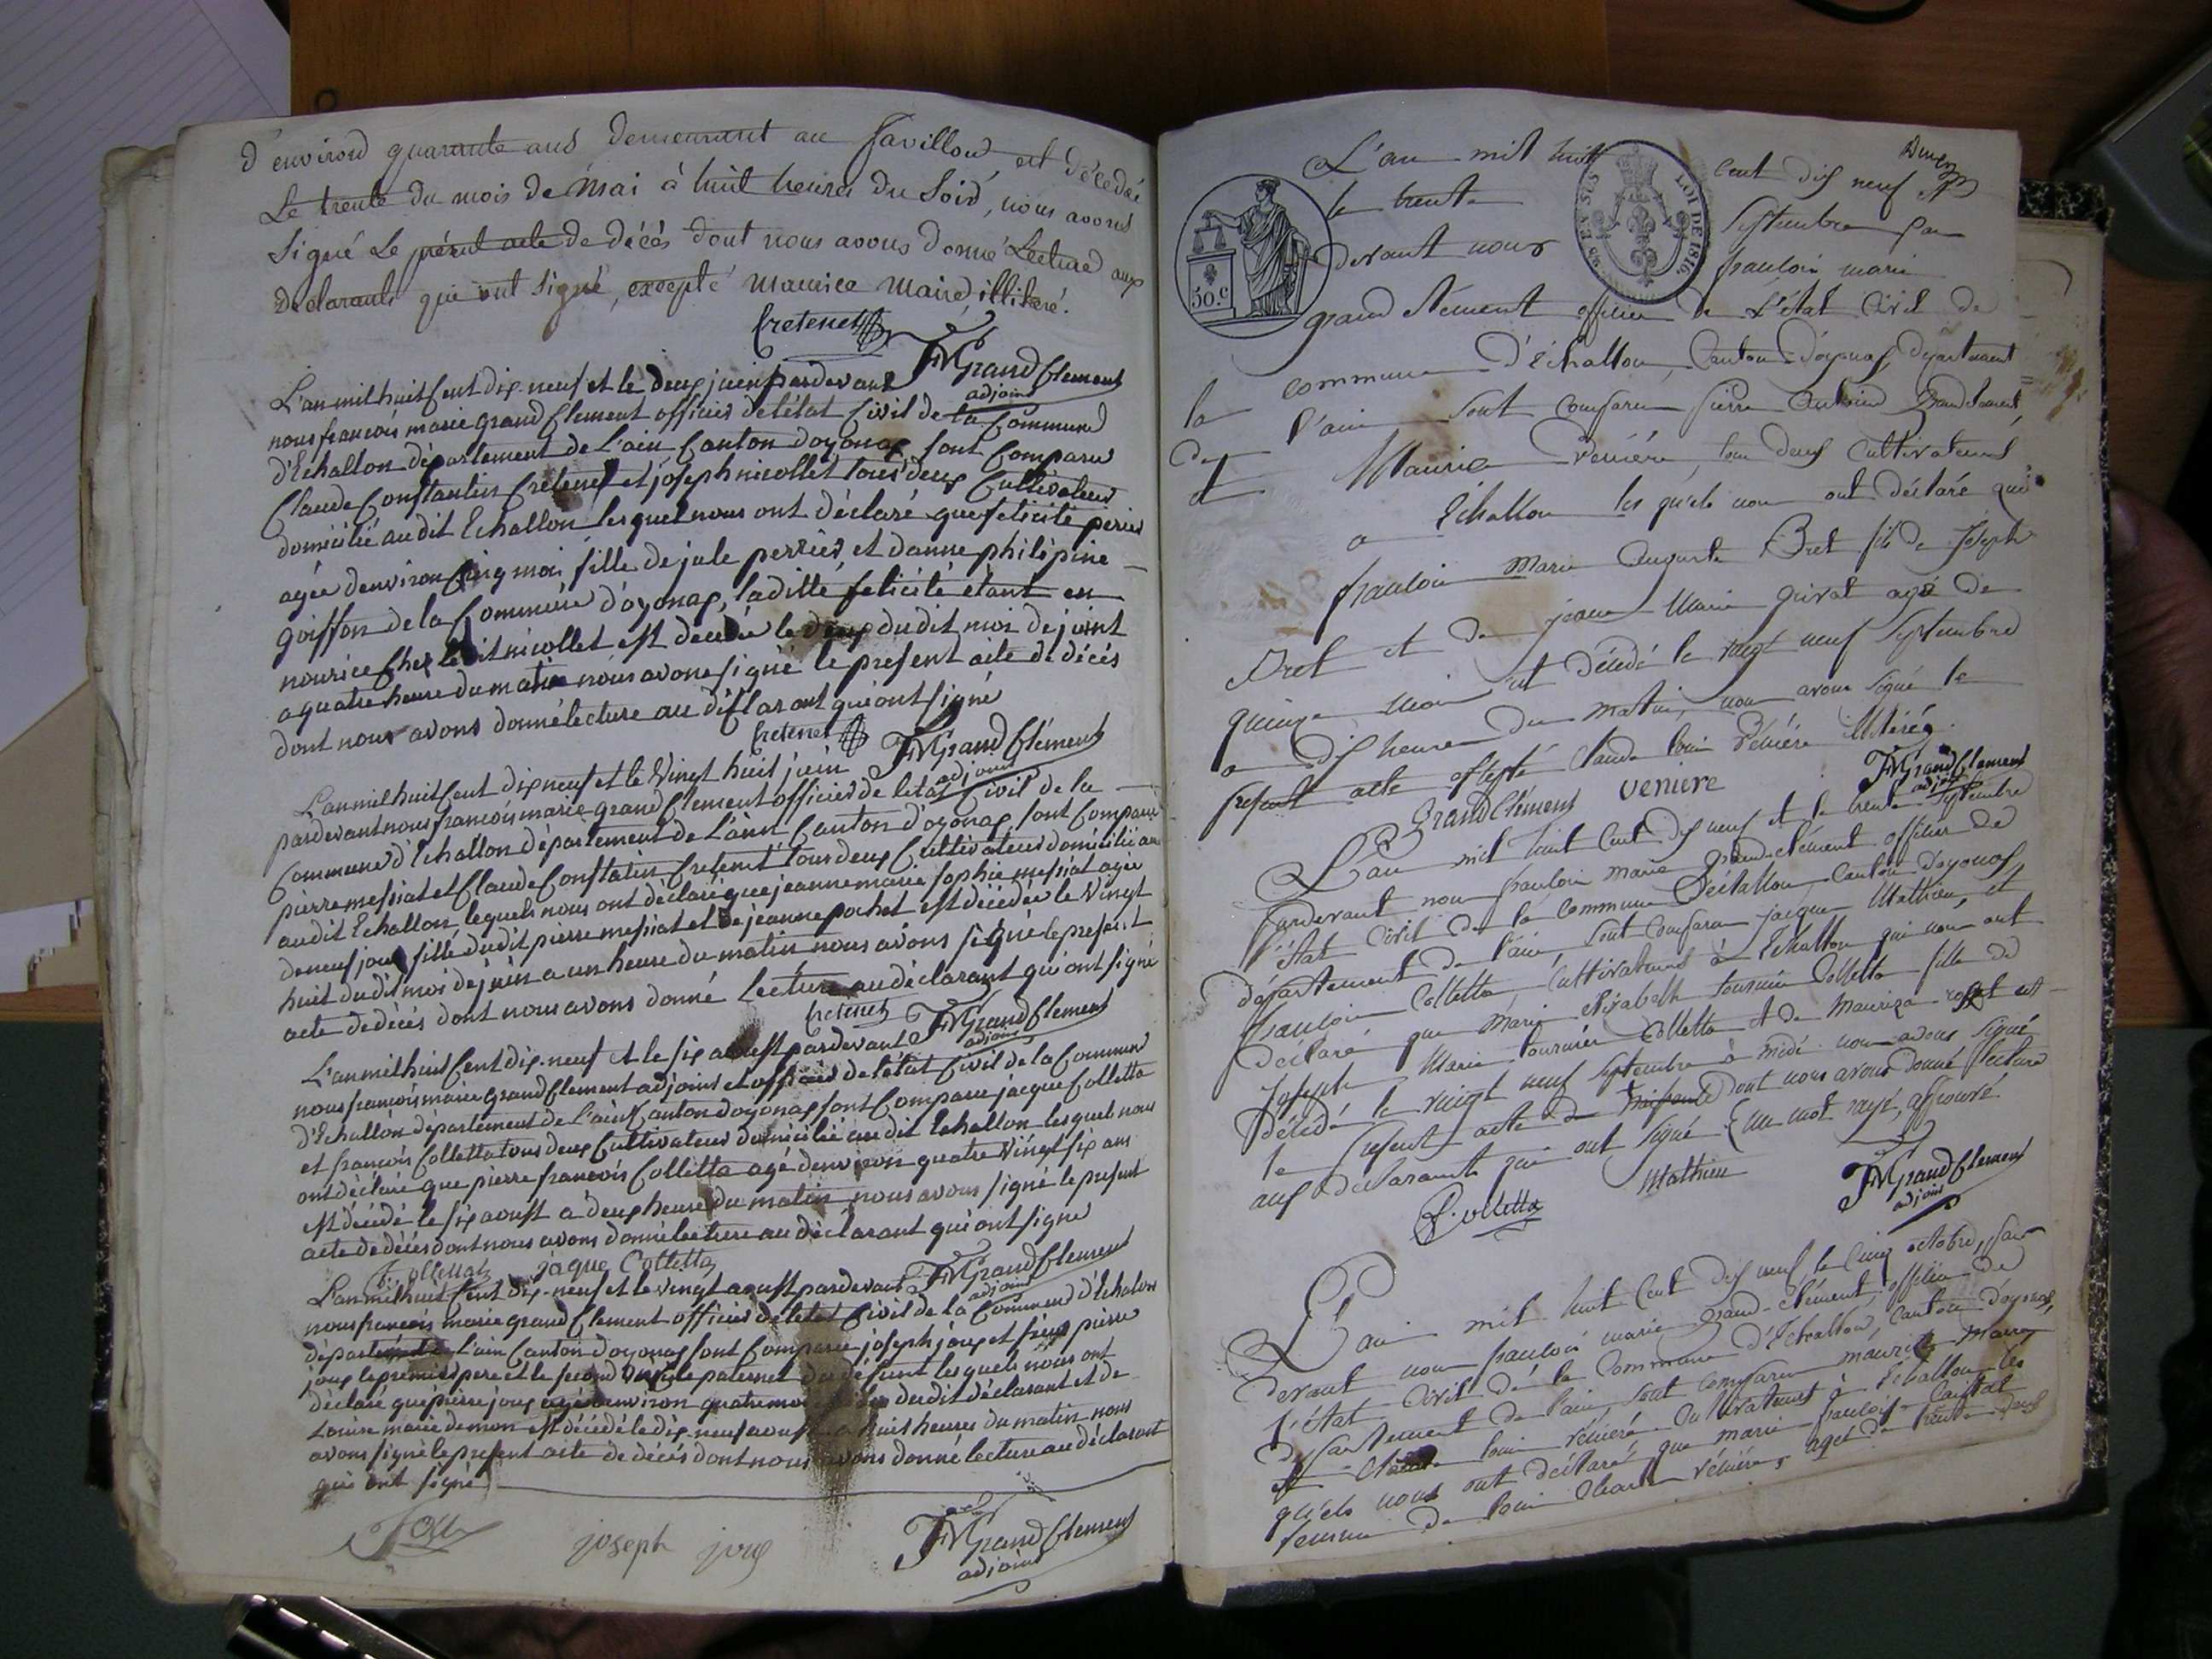 d'environ quarante ans demeurant au favillon, est décédé
Le trente du mois de Mai à huit heures du Soir, nous avons
Signé Le présent acte de décès dont nous avons donné Lecture aux
declarants qui ont signé, excepté Maurice Maire, illiteré.
Cretenet
FMGrandClement
adjoint
L'an mil huit Cent dix-neuf et le deux juin pardevant
nous françois marie grand Clement officier de l'état Civil de la Commune
d'Echallon département de L'ain Canton d'oyonax, sont Comparu
Claude Constantin Cretenet et joseph nicollet tous deux Cultivateur
domicilié au dit Echallon lesquel nous ont déclaré que felicité perrier
agée d'environ Cinq moi fille de jule perrier et danne philipine
goiffon de la Commune d'oyonax, laditte felicité étant en
nourice Chez le dit nicollet est decedée le deux du dit moi de joint
a quatre heure du matin nous avons signé le present acte de décés
dont nous avons donné lecture au déclarant qui ont signé
Cretenet
FMGrandClément
adjoint
L'an mil huit Cent dix neuf et le Vingt huit juin
pardevant nous françois marie grand Clement officier de letat Civil de la
Commune d'Echallon département de L'ain Canton d'oyonax sont Comparu
pierre messiat et Claude Constatin Cretenet tous deux Cultivateur domicilié au
audit Echallon, lequels nous ont déclaré que jeanne marie sophie messiat agée
de neuf jour fille dudit pierre messiat et de jeanne pochet est décédée le Vingt
huit dudit moi de juin a un heure du matin nous avons signé le present
acte de décés dont nous avons donné Lecture au déclarant qui ont signé
Cretenet
FMGrandClement
adjoint
L'an mil huit Cent dix-neuf et le six aoust pardevant
nous françois marie grand Clement adjoint et officier de l'état Civil de la Commune
d'Echallon département de l'ain Canton d'oyonax sont Comparu jacque Colletta
et françois Colletta tous deux Cultivateur domicilié au dit Echallon lesquels nous
ont déclaré que pierre françois Colletta agé denviron quatre Vingt six ans
est décédé le six aoust a deux heure du matin nous avons signé le present
acte de décés dont nous avons donné lecture au déclarant qui ont signé
jaque Colletta
FMGrandClement
adjoint
L'an mil huit Cent dix-neuf et le vingt aoust pardevant
nous françois marie grand Clement officier de letat Civil de la Commune d'Echalon
département de l'ain Canton d'oyonax sont Comparu joseph joux et pierre
joux le premier pere et le second oncle paternel du défunt lesquels nous ont
déclaré que pierre joux agé denviron quatre moi dudit déclarant et de
Louise marie demon est décédé le dix-neuf aoust a huit heures du matin nous
avons signé le present acte de décés dont nous avons donné lecture au déclarant
qui ont signé
Joux
joseph joux
FMGrandClement
adjoint
L'an mil huit cent dix neuf et
le trente Septembre par
devant nous françois marie
50.c
LOI DE 1816.
25 EN SUS
grand Clément officier de L'état Civil de
la commune d'Echallon, Canton d'oyonax, département
de l'ain sont comparu pierre Grand clement,
et Maurice Vénière, tous deux Cultivateurs
a Echallon les quels nous ont déclaré que
françois Marie Auguste Bret fils de Joseph
Bret et de jeanne Marie givat agé de
quinze mois est décédé le vingt neuf Septembre
a dix heures du matin, nous avons signé le
présent acte excepté Claude louis Vénière illitéré.
GrandClément
veniere
FMGrandClement
adjoint
L'an mil huit Cent dix neuf et le trente Septembre
pardevant nous françois marie grand-clément officier de
l'état Civil de la commune d'échallon, Canton d'oyonax,
département de l'ain, sont comparu jacque Mathieu, et
françois Colletta Cultivateurs à Echallon qui nous ont
déclaré que Marie Elisabeth Colletta fille de
Joseph Marie Colletta et de Mauriza est
décédé le vingt neuf Septembre à midi nous avons signé
le présent acte de naissance dont nous avons donné lecture
aux declarants qui ont signé (un mot rayé, approuvé
Colletta
Mathieu
FMGrandClement
adjoint
L'an mil huit Cent dix neuf le cinq octobre, par
devant nous françois marie grand-clément, officier de
l'état Civil de la Commune d'Echallon, Canton d'oyonax,
département de l'ain, sont comparu maurice
et Claude louis vénière Cultivateurs à Echallon les
quels nous ont déclaré que marie françoise
femme de louis vénière, aget de trente deux